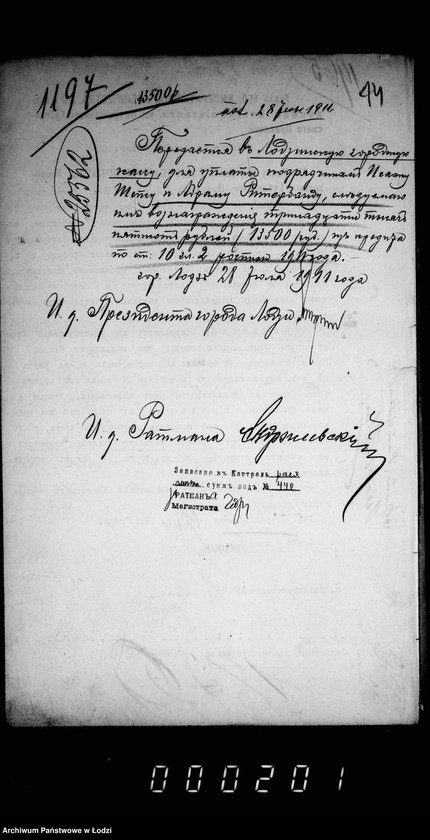 1197
13500 р
44
28 Июля 1911
№ 28362
Передается въ Лодзинскую городскую
кассу, для уплаты подрядчикамъ
и слѣдуемаго
имъ вознагражденія тринадцати тысячъ
пятьсотъ рублей (13500 руб.) изъ кредита
по ст. 10 гл. 2 росписи 1911 года. —
гор. Лодзь 28 Июля 1911 года
И. д. Президента города Лодзи
И. д. Ратмана
Записано въ Контроль расх
суммъ подъ № 440
РАТМАНЪ
Магистрата
000201
Archiwum Państwowe w Łodzi